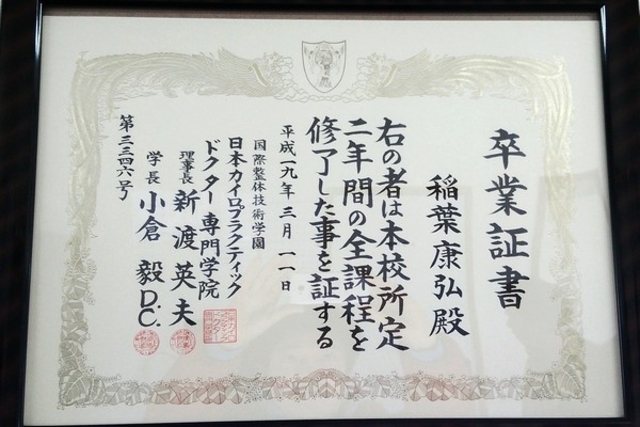 卒業証書
稲葉康弘殿
右の者は本校所定
二年間の全課程を
修了した事を証する
平成一九年三月一一日
国際整体技術学園
日本カイロプラクティック
ドクター専門学院
理事長 新渡英夫
学長 小倉毅 D.C.
第三三四六号